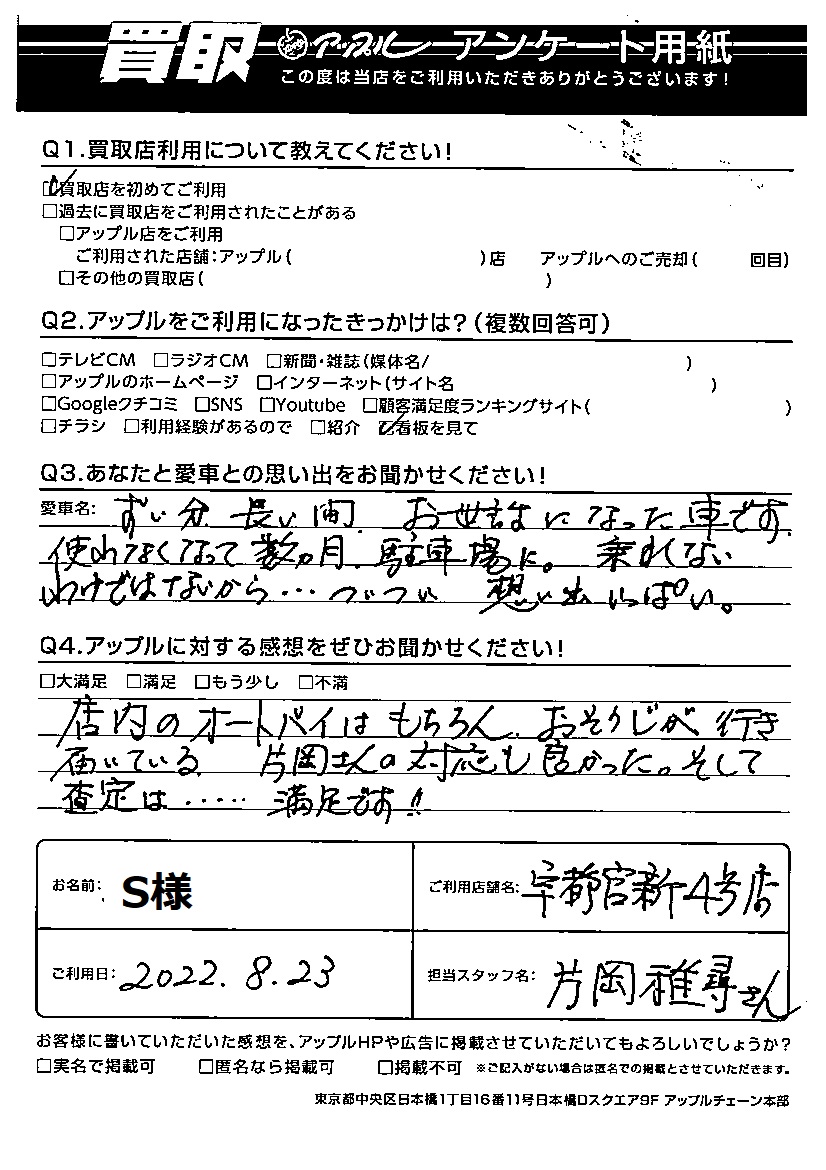 買取 アップル アンケート用紙
この度は当店をご利用いただきありがとうございます!
Q1.買取店利用について教えてください!
☑買取店を初めてご利用
□過去に買取店をご利用されたことがある
□アップル店をご利用
ご利用された店舗:アップル( )店 アップルへのご売却( 回目)
□その他の買取店( )
Q2.アップルをご利用になったきっかけは?(複数回答可)
□テレビCM □ラジオCM □新聞・雑誌(媒体名/ )
□アップルのホームページ □インターネット(サイト名 )
□Googleクチコミ □SNS □Youtube □顧客満足度ランキングサイト( )
□チラシ □利用経験があるので □紹介 ☑看板を見て
Q3.あなたと愛車との思い出をお聞かせください!
愛車名: ずい分 長い間、お世話になった車です。
使わなくなって数ヵ月、駐車場に。 乗れない
わけではないから… づいづい 想い出いっぱい。
Q4.アップルに対する感想をぜひお聞かせください!
□大満足 □満足 □もう少し □不満
店内のオートバイはもちろん、おそうじが行き
届いている。 片岡さんの対応も良かった。そして
査定は‥‥‥ 満足です!!
お名前: S様 ご利用店舗名: 宇都宮新4号店
ご利用日: 2022.8.23 担当スタッフ名: 片岡雅尋さん
お客様に書いていただいた感想を、アップルHPや広告に掲載させていただいてもよろしいでしょうか?
□実名で掲載可 □匿名なら掲載可 □掲載不可 ※ご記入がない場合は匿名での掲載とさせていただきます。
東京都中央区日本橋1丁目16番11号日本橋Dスクエア9F アップルチェーン本部